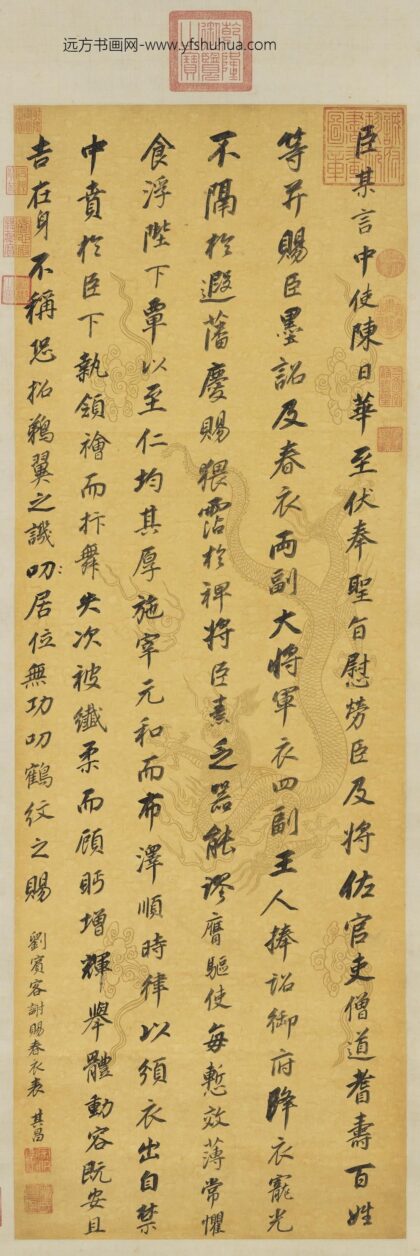 远方书画网-www.yfshuhua.com
乾隆御覽之寶
臣某言中使陳日華至伏奉聖旨慰勞臣及將佐官吏僧道耆壽百姓
等并賜臣墨詔及春衣兩副大將軍衣四副王人捧詔御府降衣寵光
不隔於遐藩慶賜猥霑於裨將臣素乏器能謬膺驅使每慙效薄常懼
食浮陛下覃以至仁均其厚施宰元和而布澤順時律以頒衣出自禁
中賁於臣下執領襘而抃舞失次被纖柔而顧眄增輝舉體動容既安且
吉在身不稱恐招鵜翼之譏叨:居位無功叨鶴紋之賜
劉賓客謝賜春衣表 其昌